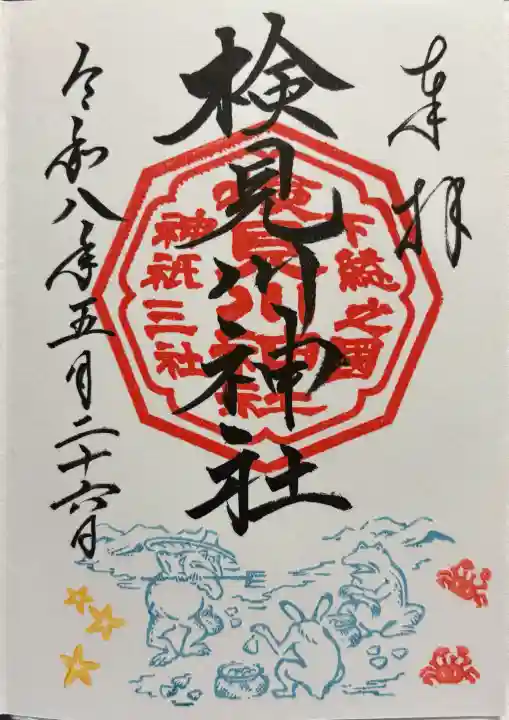 奉拝
下総之国
検見川神社
神祇三社
検見川神社
令和八年五月二十六日